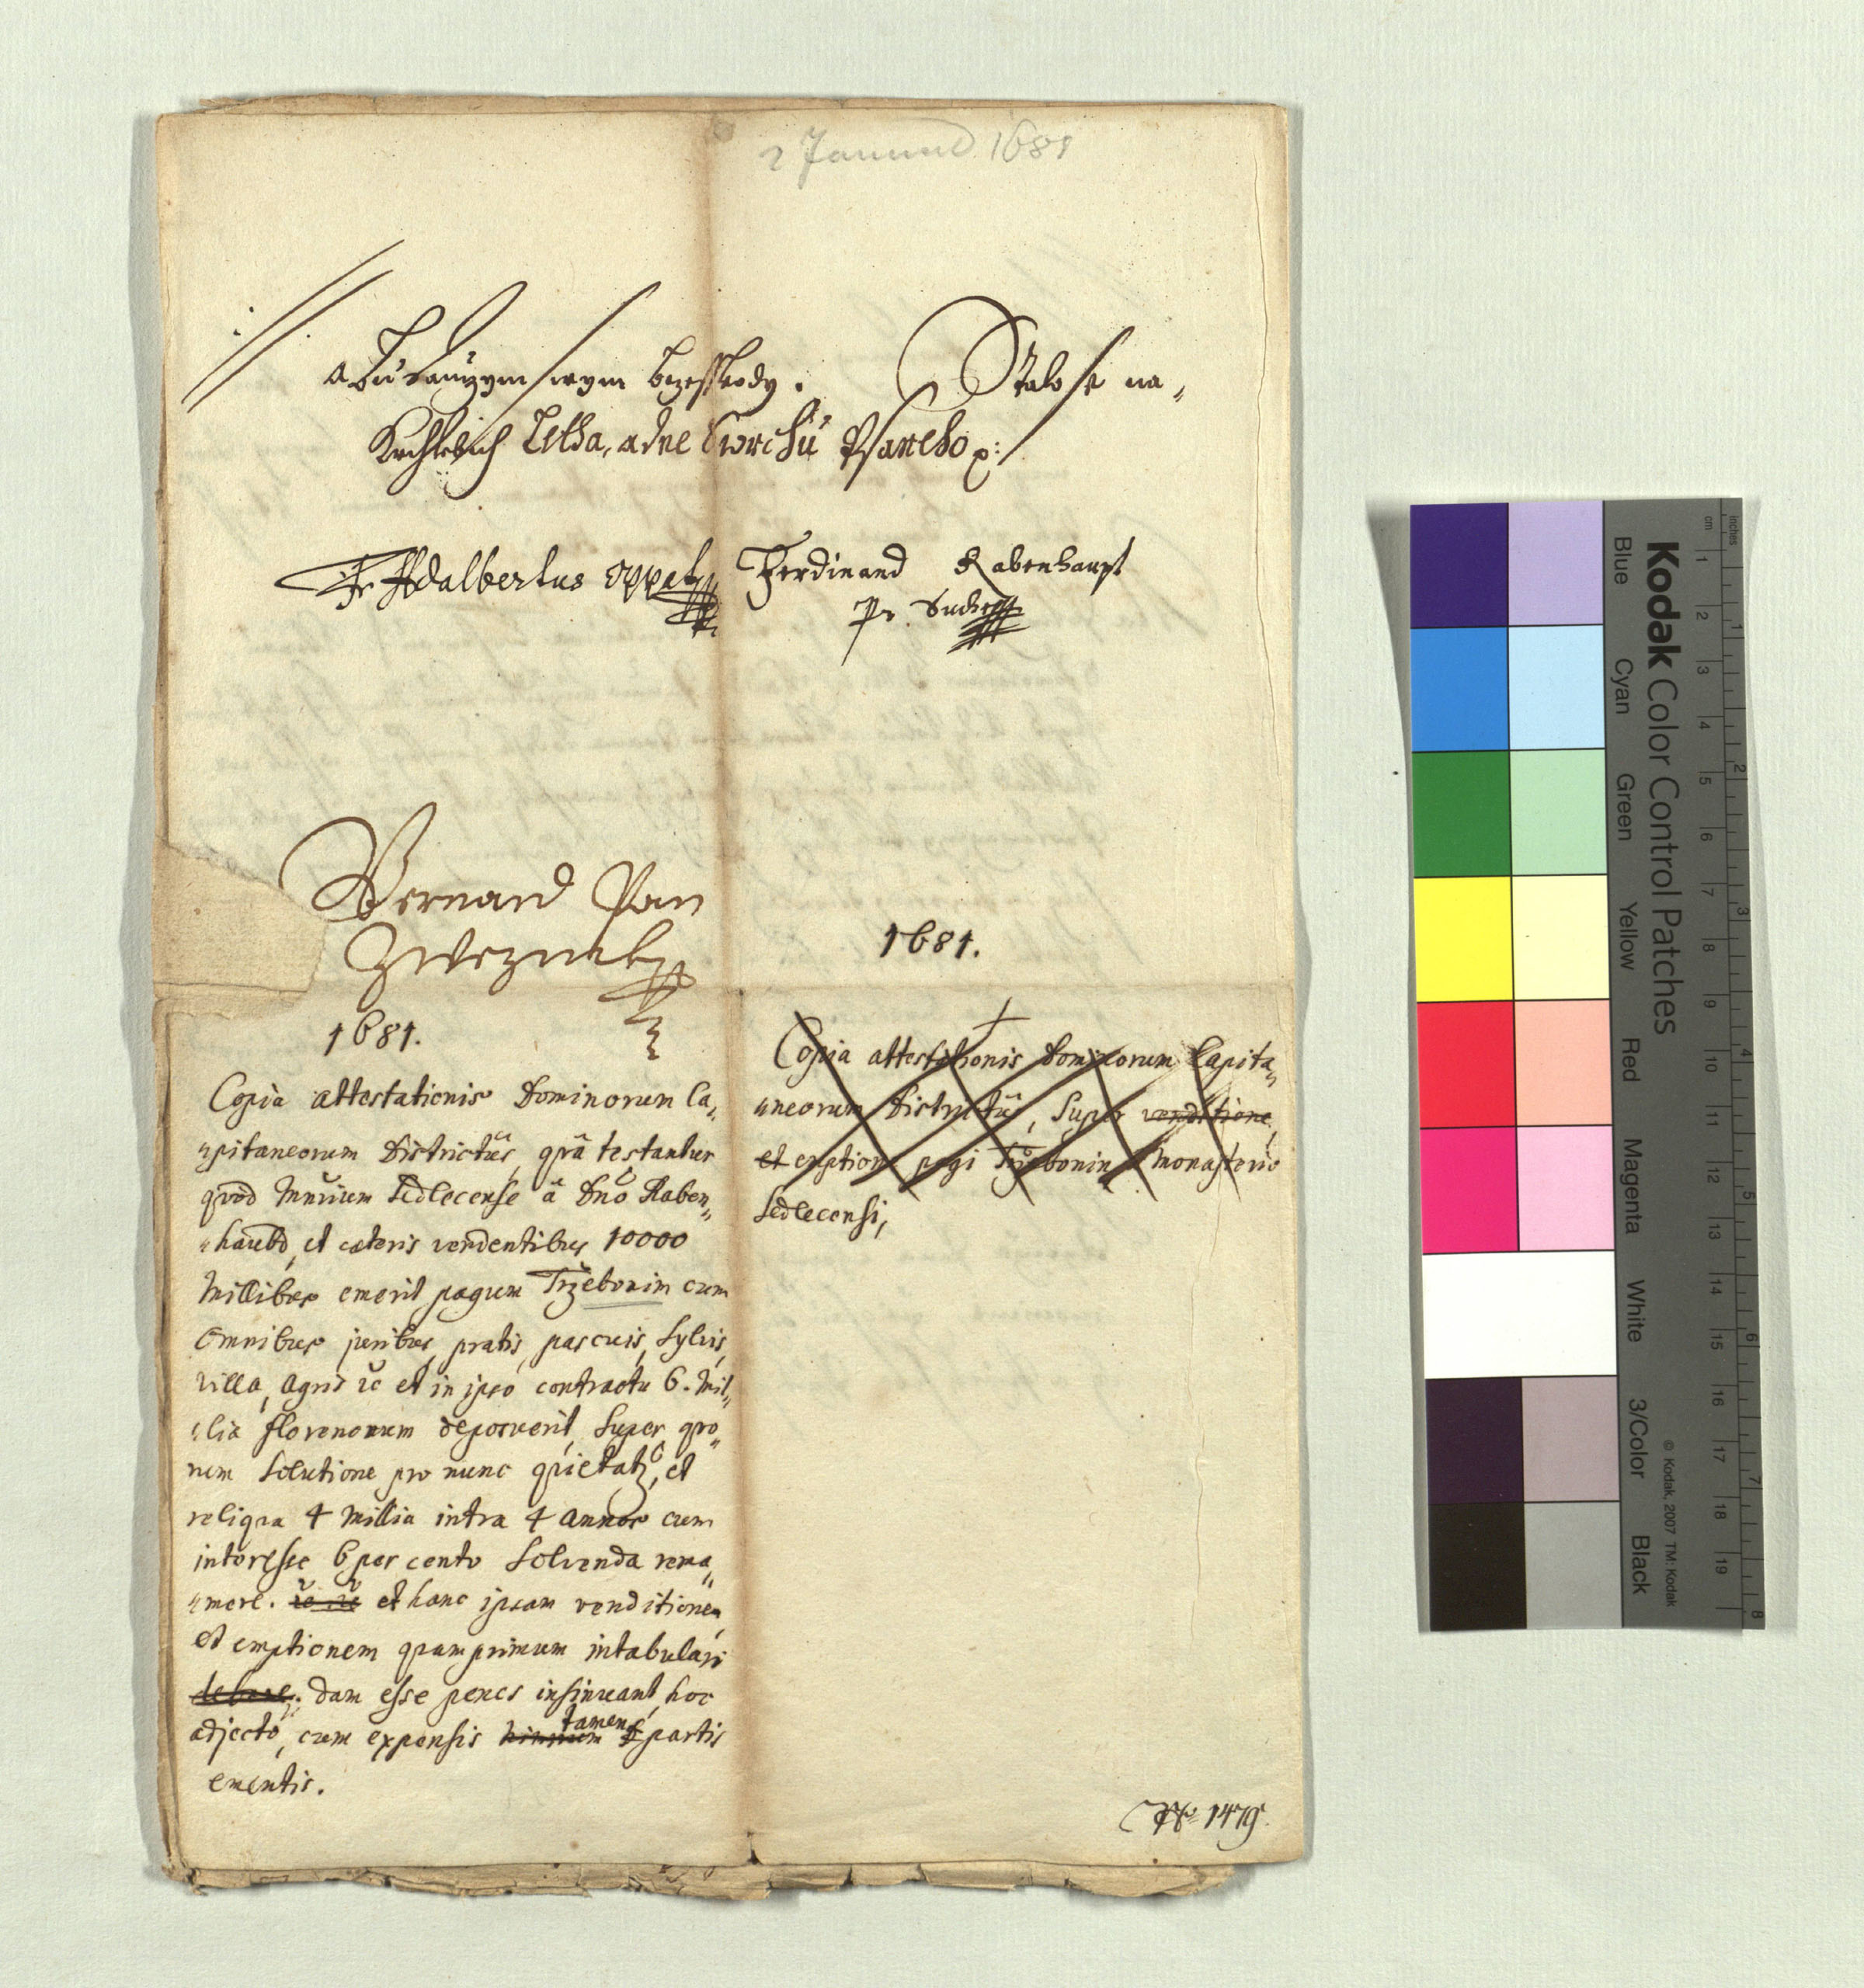 2 Januar 1681
a Budauczym swym bezesskody. Stalo se na„
Letha, a dne Swrchu Psaneho p:
Fr Adalbertus oppat
Ferdinand Rabenhaupt
Pr. Suche
Bernard Jan
1681.
1681.
Copia attestationis Dominorum Ca„
„pitaneorum Districtûs, quâ testantur
quod Mnrium Sedlecense â Dno Raben„
„haubd, et cæteris vendentibus 10000
Millibus emerit pagum Trzebonin cum
Omnibus juribus, pratis, pascuis, Sylvis,
villa, Agris &c et in ipso contractu 6. Mil„
„lia florenorum deposuerit, Super quo„
rum Solutione pro nunc quietatz, et
reliqua 4 Millia intra 4 Annos cum
interesse 6 per cento Solvenda rema„
„nere. &c &c et hanc ipsam venditionem
et emptionem quamprimum intabulari
debere. dam esse penes insinuant, hoc
adjecto, cum expensis tamen partis
ementis.
Copia attestationis Dominorum Capita„
„neorum Districtûs, Super venditione,
et emptione pagi Trzebonin Monasterio
Sedlecensi,
No 1479.
Kodak Color Control Patches
Blue Cyan Green Yellow Red Magenta White 3/Color Black
© Kodak, 2007 TM: Kodak
inches 1 2 3 4 5 6 7 8
cm 1 2 3 4 5 6 7 8 9 10 11 12 13 14 15 16 17 18 19